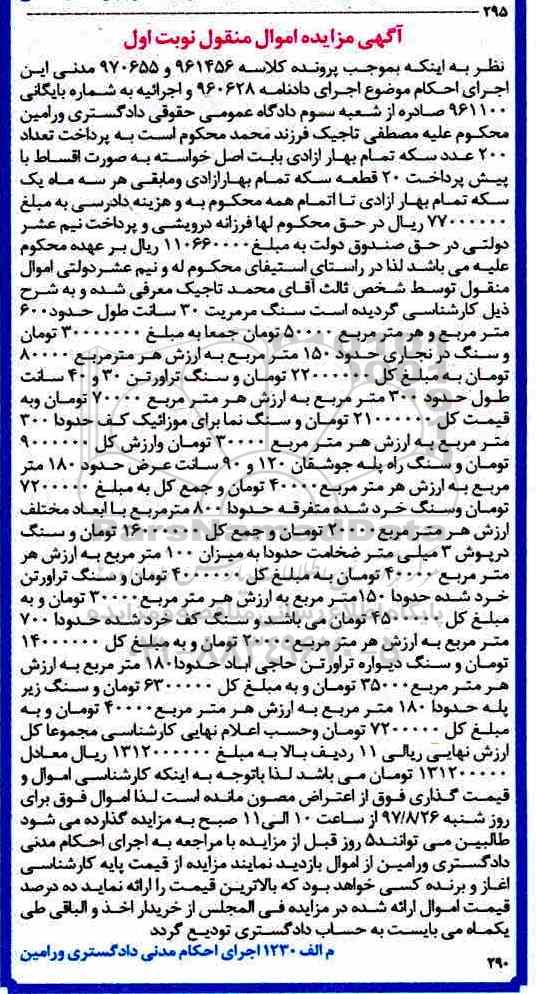 ۲۹۵
آگهی مزایده اموال منقول نوبت اول
نظر به اینکه بموجب پرونده کلاسه ۹۶۱۴۵۶ و ۹۷۰۶۵۵ مدنی این
اجرای احکام موضوع اجرای دادنامه ۹۶۰۶۲۸ و اجرائیه به شماره بایگانی
۹۶۱۱۰۰ صادره از شعبه سوم دادگاه عمومی حقوقی دادگستری ورامین
محکوم علیه مصطفی تاجیک فرزند محمد محکوم است به پرداخت تعداد
۲۰۰ عدد سکه تمام بهار ازادی بابت اصل خواسته به صورت اقساط با
پیش پرداخت ۲۰ قطعه سکه تمام بهارازادی ومابقی هر سه ماه یک
سکه تمام بهار ازادی تا اتمام همه محکوم به و هزینه دادرسی به مبلغ
۷۷۰۰۰۰۰۰ ریال در حق محکوم لها فرزانه درویشی و پرداخت نیم عشر
دولتی در حق صندوق دولت به مبلغ ۱۱۰۶۶۰۰۰۰ ریال بر عهده محکوم
علیه می باشد لذا در راستای استیفای محکوم له و نیم عشردولتی اموال
منقول توسط شخص ثالث آقای محمد تاجیک معرفی شده و به شرح
ذیل کارشناسی گردیده است سنگ مرمریت ۳۰ سانت طول حدود۶۰۰
متر مربع و هر متر مربع ۵۰۰۰۰ تومان جمعا به مبلغ ۳۰۰۰۰۰۰۰ تومان
و سنگ در نجاری حدود ۱۵۰ متر مربع به ارزش هر مترمربع ۸۰۰۰۰
تومان به مبلغ کل ۲۲۰۰۰۰۰۰ تومان و سنگ تراورتن ۳۰ و ۴۰ سانت
طول حدود ۳۰۰ متر مربع به ارزش هر متر مربع ۷۰۰۰۰ تومان وبه
قیمت کل ۲۱۰۰۰۰۰۰ تومان و سنگ نما برای موزائیک کف حدودا ۳۰۰
متر مربع به ارزش هر متر مربع ۳۰۰۰۰ تومان وارزش کل ۹۰۰۰۰۰۰
تومان و سنگ راه پله جوشقان ۱۲۰ و ۹۰ سانت عرض حدود ۱۸۰ متر
مربع به ارزش هر متر مربع۴۰۰۰۰ تومان و جمع کل به مبلغ ۷۲۰۰۰۰۰
تومان وسنگ خرد شده متفرقه حدودا ۸۰۰ مترمربع با ابعاد مختلف
ارزش هر متر مربع ۲۰۰۰۰ تومان و جمع کل ۱۶۰۰۰۰۰۰ تومان و سنگ
درپوش ۳ میلی متر ضخامت حدودا به میزان ۱۰۰ متر مربع به ارزش هر
متر مربع ۴۰۰۰۰ تومان به مبلغ کل ۴۰۰۰۰۰۰ تومان و سنگ تراورتن
خرد شده حدودا ۱۵۰متر مربع به ارزش هر متر مربع۳۰۰۰۰ تومان و به
مبلغ کل ۴۵۰۰۰۰۰ تومان می باشد و سنگ کف خرد شده حدودا ۷۰۰
متر مربع به ارزش هر متر مربع ۲۰۰۰۰ تومان و به مبلغ کل ۱۴۰۰۰۰۰۰
تومان و سنگ دیواره تراورتن حاجی اباد حدودا ۱۸۰ متر مربع به ارزش
هر متر مربع۳۵۰۰۰ تومان و به مبلغ کل ۶۳۰۰۰۰۰ تومان و سنگ زیر
پله حدودا ۱۸۰ متر مربع به ارزش هر متر مربع۴۰۰۰۰ تومان و به
مبلغ کل ۷۲۰۰۰۰۰ تومان وحسب اعلام نهایی کارشناسی مجموعا کل
ارزش نهایی ریالی ۱۱ ردیف بالا به مبلغ ۱۳۱۲۰۰۰۰۰۰ ریال معادل
۱۳۱۲۰۰۰۰۰ تومان می باشد لذا باتوجه به اینکه کارشناسی اموال و
قیمت گذاری فوق از اعتراض مصون مانده است لذا اموال فوق برای
روز شنبه ۹۷/۸/۲۶ از ساعت ۱۰ الی۱۱ صبح به مزایده گذارده می شود
طالبین می توانند۵ روز قبل از مزایده با مراجعه به اجرای احکام مدنی
دادگستری ورامین از اموال بازدید نمایند مزایده از قیمت پایه کارشناسی
اغاز و برنده کسی خواهد بود که بالاترین قیمت را ارائه نماید ده درصد
قیمت اموال ارائه شده در مزایده فی المجلس از خریدار اخذ و الباقی طی
یکماه می بایست به حساب دادگستری تودیع گردد
م الف ۱۲۳۰ اجرای احکام مدنی دادگستری ورامین
۲۹۰